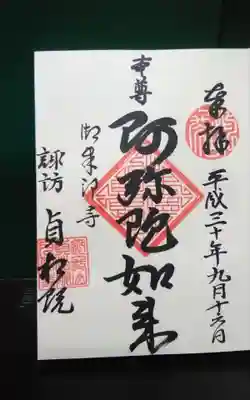 奉拝
平成三十年九月十六日
本尊
阿弥陀如来
御朱印寺
諏訪
貞松院